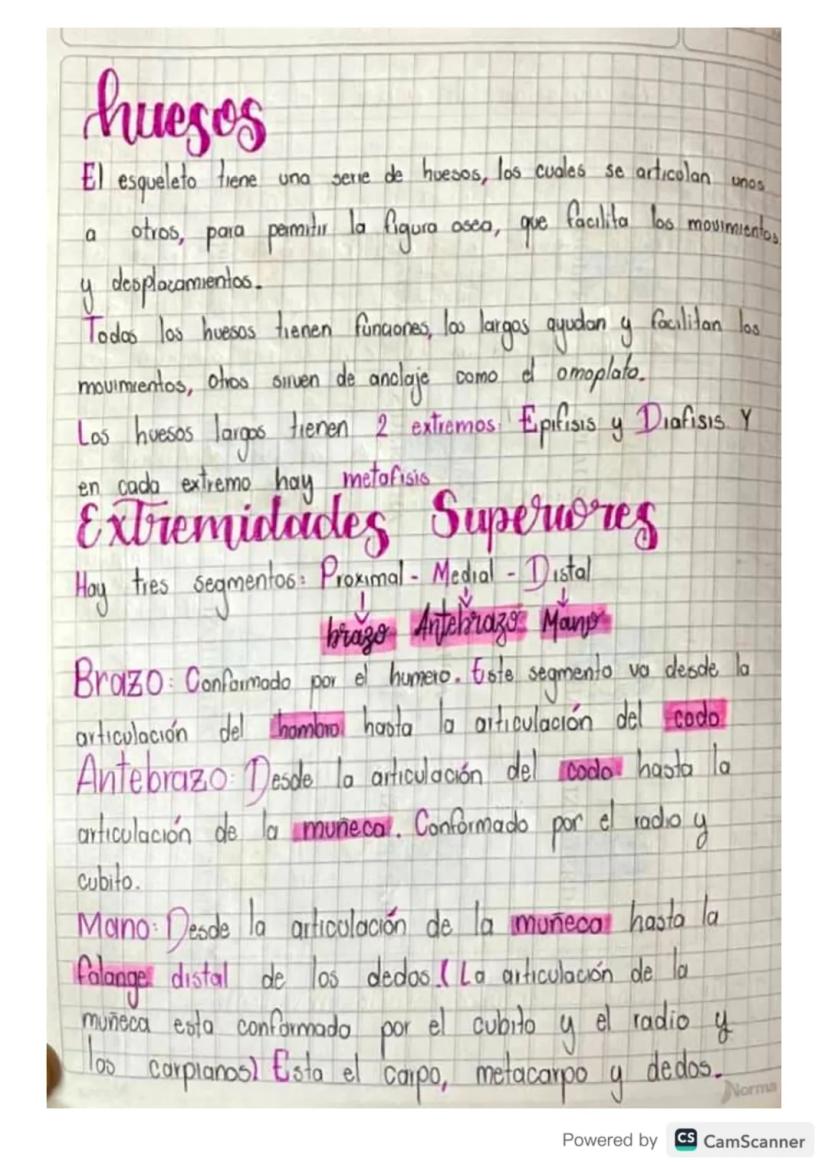 huesos
El esqueleto tiene una serie de huesos, los cuales se articolan unos
a otros, para permitir la figura osea, que facilita los movimientos
y desplazamientos.
Todos los huesos tienen funciones, los largos ayudan y facilitan los
movimientos, otros sirven de anclaje como el omoplato.
Los huesos largos tienen 2 extremos: Epifisis y Diafisis Y
en cada extremo hay metafisis
Extremidades Superiores
Hay tres segmentos: Proximal - Medial - Distal
brazo Antebrazo Mano
Brazo: Conformado por el humero. Este segmento va desde la
articulación del hombro hasta la articulación del codo
Antebrazo: Desde la articulación del codo hasta la
articulación de la muñeca. Conformado por el radio y
cubito.
Mano: Desde la articulación de la muñeca hasta la
falange distal de los dedos. (La articulación de la
muñeca esta conformado por el cubito y el radio y
los carpianos) Esta el carpo, metacarpo y dedos.
Norma
Powered by CS CamScanner